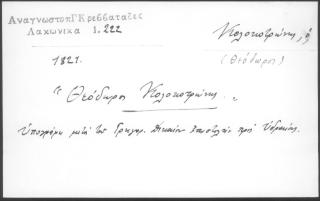 Αναγνωστοπ Γ Κρεββαταζες
Λακωνικα 1. 222
Κολοκοτρώνης, ὁ
(Θεόδωρος)
1821.
"Θεόδωρος Κολοκοτρώνης."
Ὑπογράφει μετὰ τοῦ Γρηγορ. Δικαίου ἐπιστολὴν πρὸς Ὑδραίους.